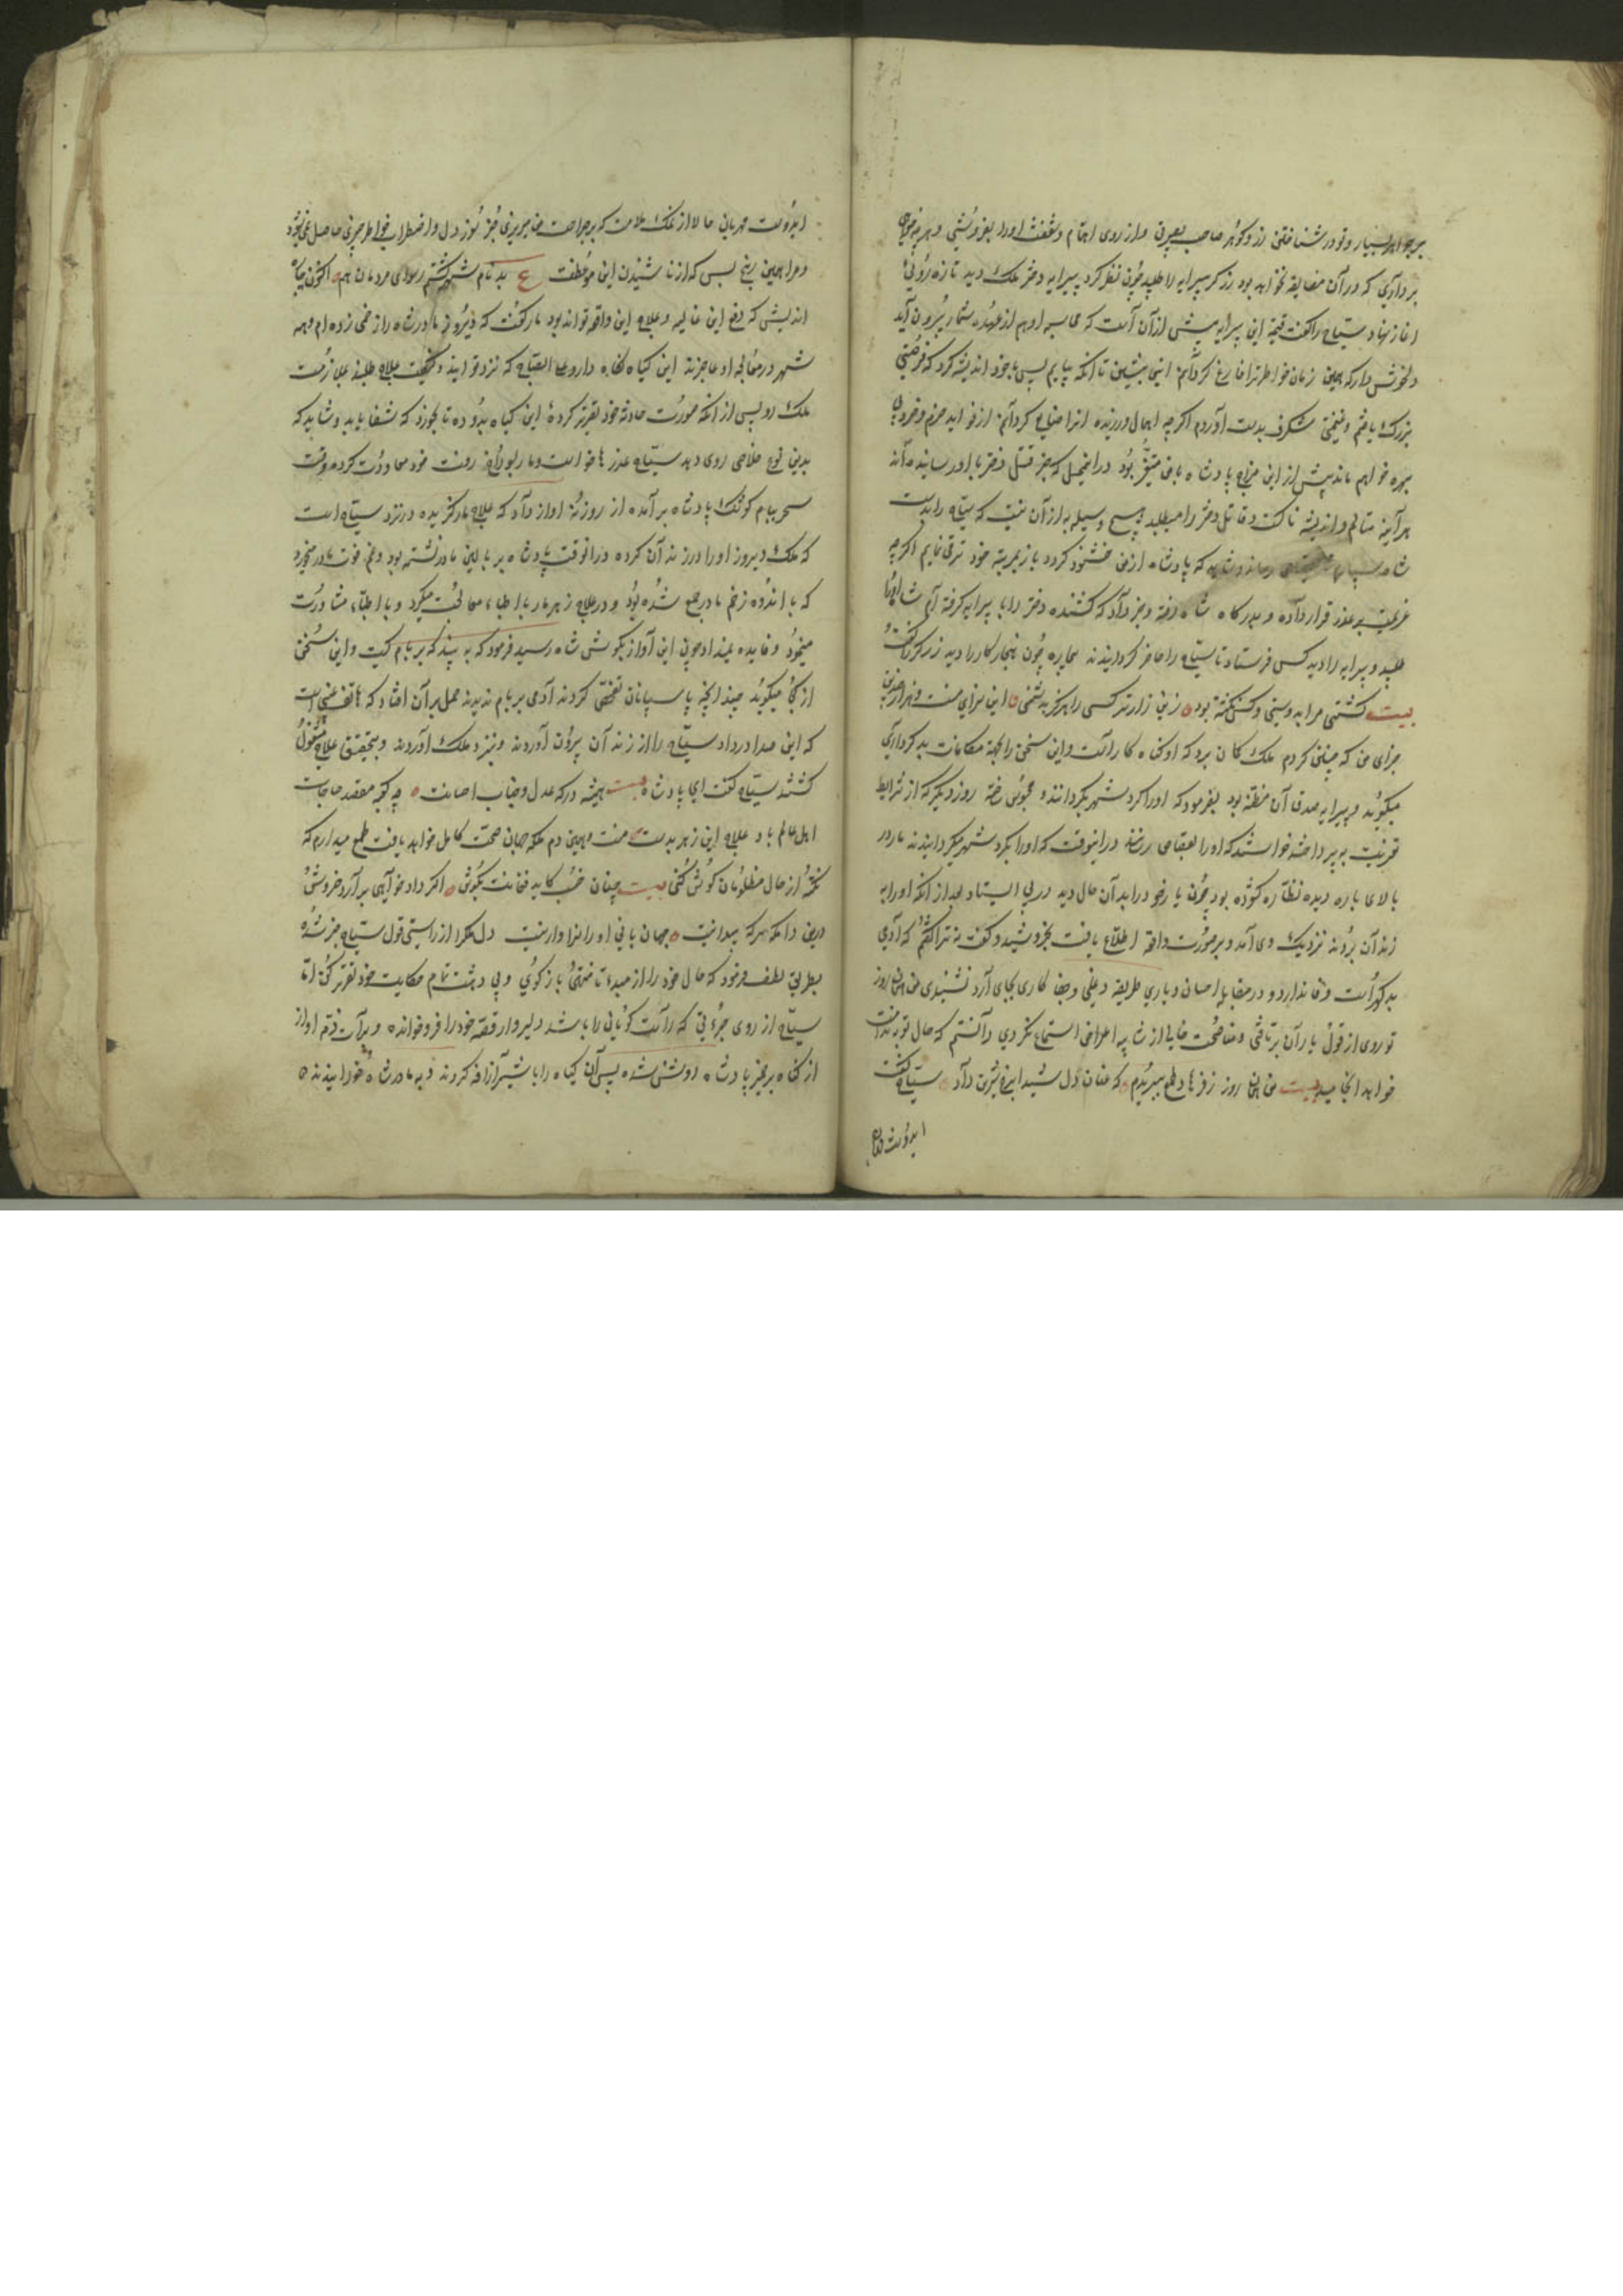 بر جواهر بسیار و تو در شناختن زر و گوهر صاحب بصیرتی و از روی اهتمام و شفقت اورا بفروشی و هرچه خواهی
برداری که در آن مضایقه نخواهد بود زرگر پیرایه را طلبید چون نظر کرد پیرایه دختر ملک دید تازه روئی
اغاز نهاد و سیاح را گفت قیمت این پیرایه بیش از آن است که محاسب اوهم از عهده شمار بیرون آید
دلخوش دار که همین زمان خواطر ترا فارغ گردانم اینجا بنشین تا آنکه بیایم پس با خود اندیشه کرد که فرصتی
بزرگ یافتم و غنیمتی شگرف بدست آوردم اگر چه اهمال ورزیده انرا ضایع گردانم از فواید حزم و خرد بی
بهره خواهم ماند پیش از این مزاج پادشاه با من متغیر بود در اینمحل که خبر قتل دختر باو رسانیده‌اند
هر آینه متالم و اندیشه ناکست و قاتل دختر را میطلبد هیچ وسیله به از آن نیست که سیاح را بدست
شاه که پادشاه از من خشنود گردد باز بمرتبه خود ترقی نمایم اگر چه
عزیمت بر عذر قرار داده و بدرگاه شاه رفته و خبر داد که کشنده دختر را با پیرایه گرفته ام شاه اورا
طلبید و پیرایه را دید کسی فرستاد تا سیاح را حاضر گردانیدند بیچاره چون هنجار کار را دید زرگر را گفت
بیت کشتی مرا بدوستی و کس نکشته بود زین زارتر کسی را هرگز بدشمنی این سزای منست و هزار چندین
جزای من که چنین کردم ملک گمان برد که او گناه کار است و این سخن را بجهة مکافات بد کرداری
میگوید و پیرایه مصدق آن مظنه بود بفرمود که اورا گرد شهر بگردانند و محبوس ساخته روز دیگر که از شرایط
تعزیت بپرداخته خواستند که اورا بقصاص رسانند در اینوقت که اورا بگرد شهر میگردانیدند مار در
بالای باره دیده نظاره گشوده بود چون یار خود را بدان حال دید در پی ایستاد بعد از آنکه اورا به
زندان بردند نزدیک وی آمد و بر صورت واقعه اطلاع یافت بخروشید و گفت نه ترا گفتم که آدمی
بد گهر است وفا ندارد و در مقابل احسان و یاری طریقه دغلی و جفا کاری بجای آرد نشنیدی من همان روز
تو روی از قول یاران برتافتی و مناصحت خالی از شایبه اغراض استماع نکردی دانستم که حال تو بندامت
خواهد انجامید بیت من همان روز ز فرهاد طمع ببریدم که عنان دل شیدا بسر شیرین داد سیاح گفت
ایدوست مهربان
ایدوست مهربان حالا از نمک ملامت که بر جراحت من میریزی جز سوز دل و اضطراب خواطر چیزی حاصل نمیشود
و مرا همین رنج بس که از ناشنیدن این موعظت ع بدنام شهر گشتم رسوای مردمان هم اکنون چاره
اندیشی که دفع این غایله و علاج این واقعه تواند بود مار گفت که دیروز مادر شاه را زخمی زده ام و همه
شهر در معالجه او عاجزند این گیاه نگاه دار و علی الصباح که نزد تو آیند و کیفیت علاج طلبند ملازمت
ملک رو پس از آنکه صورت حادثه خود تقریر کرده این گیاه بدو ده تا بخورد که شفا یابد و شاید که
بدین نوع خلاصی روی دهد سیاح عذرها خواست و مار بسوراخ رفت خود معاودت کرده وقت
سحر ببام کوشک پادشاه بر آمده از روزنه اواز داد که علاج مار گزیده در نزد سیاح است
که ملک دیروز اورا در زندان کرده در انوقت پادشاه بر بالین مادر نشسته بود و غم فوت مادر میخورد
که با اندوه زخم مادر جمع شده بود و در علاج زهر مار با اطبا معالجت میکرد و با اطبا مشاورت
مینمود و فایده نمیداد چون این آواز بگوش شاه رسید فرمود که به بیند که بر بام کیست و این سخن
از کجا میگوید چندانچه پاسبانان تفحص کردند آدمی بر بام ندیدند حمل بر آن افتاد که هاتف غیبی است
که این صدا در داد سیاح را از زندان بیرون آوردند و نزد ملک آوردند و بتحقیق علاج مشغول
گشتند سیاح گفت ای پادشاه بیت همیشه درگه عدل و جناب احسانت چو کعبه مقصد حاجات
اهل عالم باد علاج این زهر بدست منست و همین دم ملکه جهان صحت کامل خواهد یافت طمع میدارم که
نکته از حال مظلومان گوش کنی بیت چنان خسب کاید فغانت بگوش اگر داد خواهی بر آرد خروش
درین دامگه هر که بیدار نیست جهان بانی او را سزاوار نیست دل ملک از راستی قول سیاح خبر شده
بطریق لطف فرمود که حال خود را از مبداء تا منتهی باز گوی و بی دهشت تمام حکایت خود تقریر کن اما
سیاح از روی جرءتی که راست گویانی را باشد دلیروار قصه خود را فرو خوانده و براءت ذمه او از
از گناه بر ضمیر پادشاه روشن شده پس آن گیاه را با شیر اضافه کردند و به مادر شاه خورانیدند